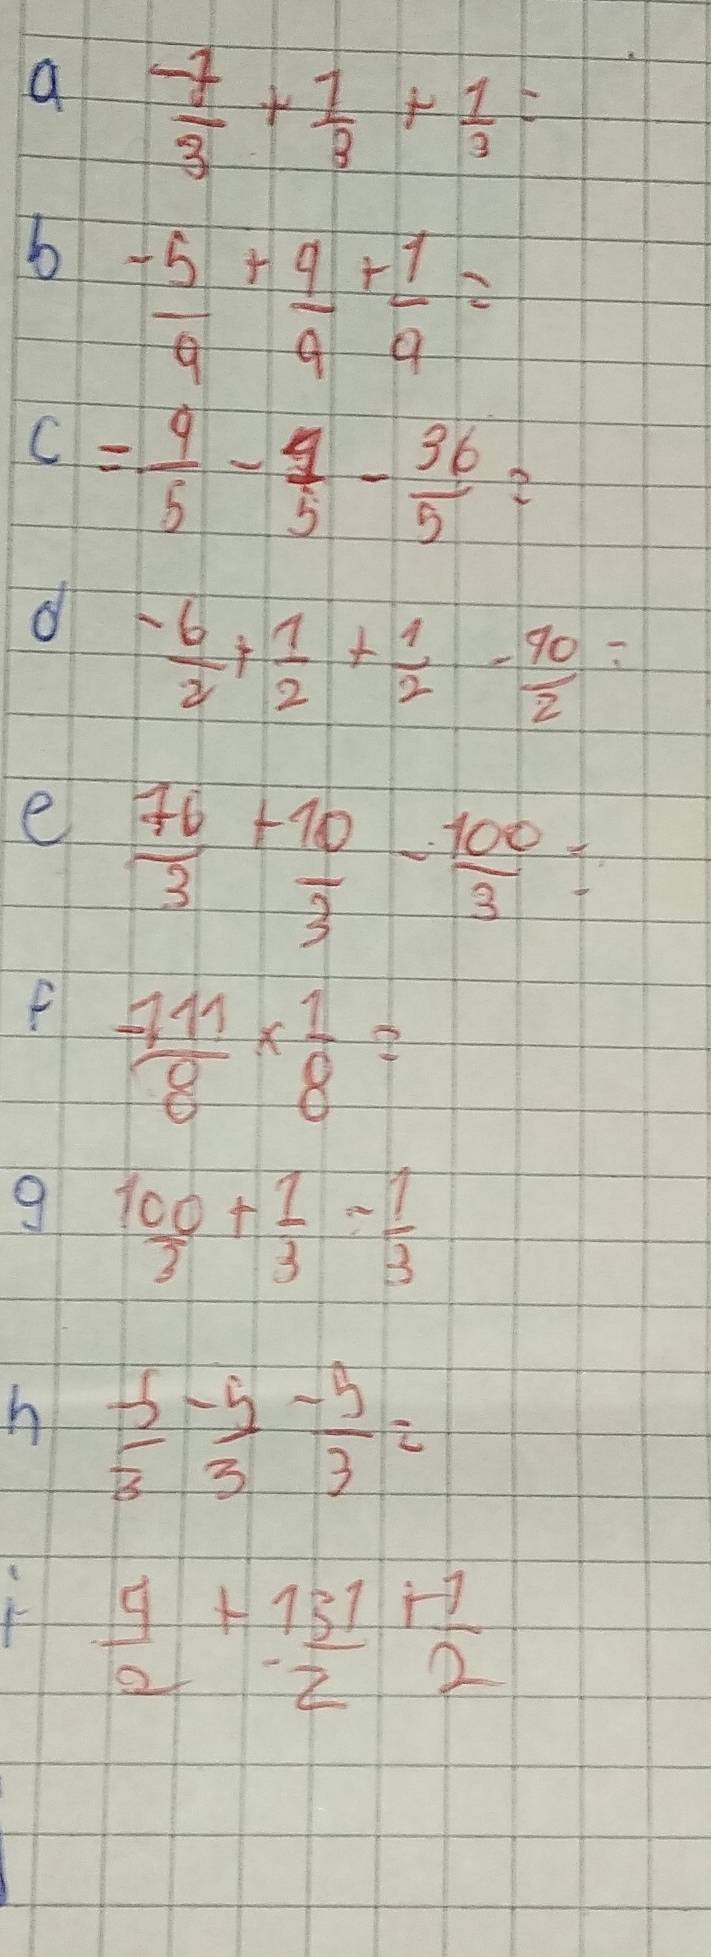 a -7/3 + 1/3 + 1/3 =
b -5/9 + 9/9 + 1/9 =
c = 9/5 - 9/5 - 36/5 =
d -6/2 + 1/2 + 1/2 - 90/2 =
e 76/3 + 10/3 - 100/3 =
f -111/8 × 1/8 =
g 100/3 + 1/3 - 1/3
h -5/3 - 5/3 - 5/3 =
i 9/2 + 131/2 + 1/2